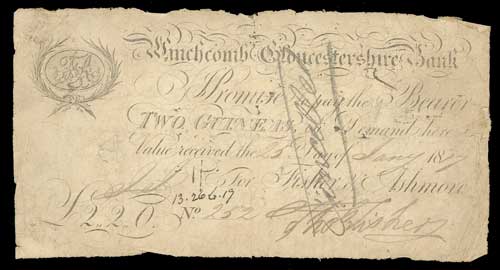 Winchcomb Gloucestershire Bank
I Promise to pay the Bearer
TWO GUINEAS, on Demand here
Value received the Day of Jany 18
For Fisher & Ashmore
13.266.19
£2..2..0. No 252 Tho Fisher